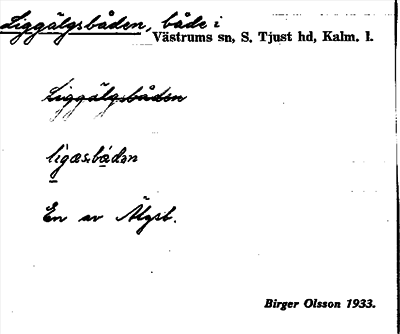 Liggälgsbåden, både i
Västrums sn, S. Tjust hd, Kalm. l.
Liggälgsbåden
ligæsbådən
En av Älgsb.
Birger Olsson 1933.